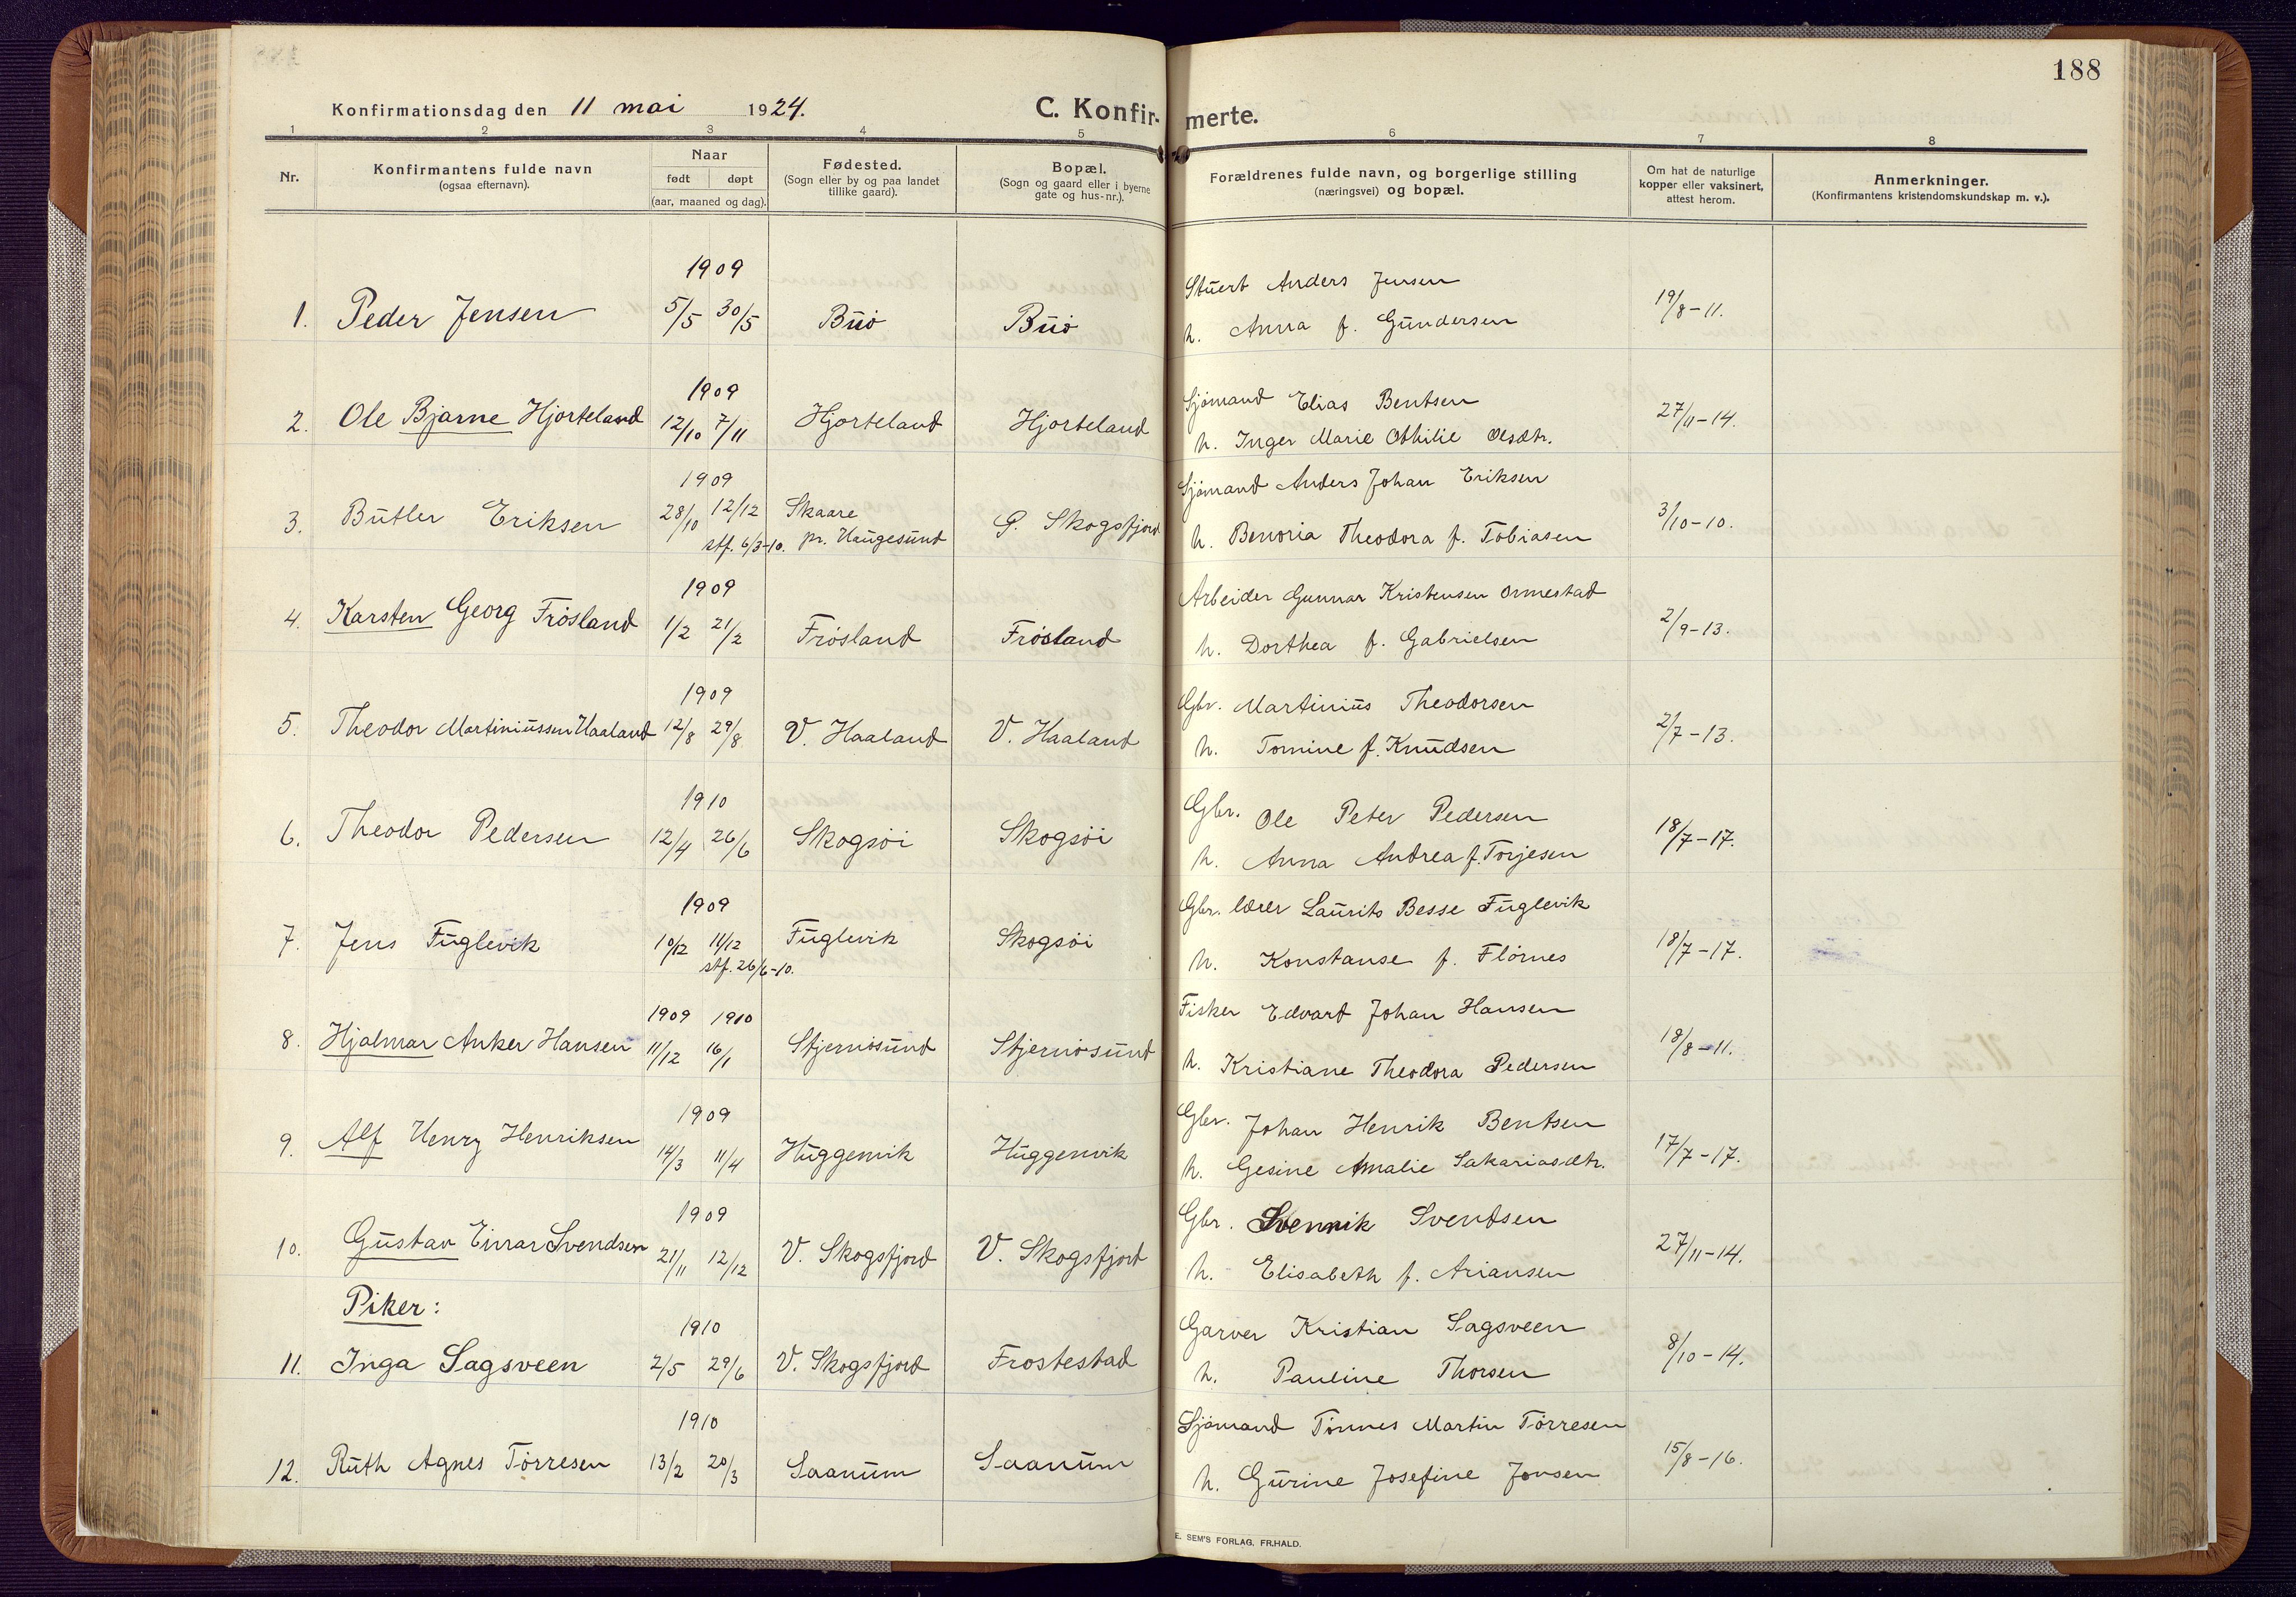 188
Konfirmationsdag den 11 mai 1924.
C. Konfirmerte.
1 2 3 4 5 6 7 8
Nr.
Konfirmantens fulde navn
(ogsaa efternavn).
Naar
født døpt
(aar, maaned og dag).
Fødested.
(Sogn eller by og paa landet
tillike gaard).
Bopæl.
(Sogn og gaard eller i byerne
gate og hus-nr.).
Forældrenes fulde navn, og borgerlige stilling
(næringsvei) og bopæl.
Om hat de naturlige
kopper eller vaksinert,
attest herom.
Anmerkninger.
(Konfirmantens kristendomskundskap m. v.).
1909
Stuert Anders Jensen
1. Peder Jensen 5/5 30/5 Buø Buø 19/8-11.
h. Anna f. Gundersen
1909
Sjømand Elias Bentsen
2. Ole Bjarne Hjorteland 12/10 7/11 Hjorteland Hjorteland 27/11-14.
h. Inger Marie Othilie Olsdtr.
1909
Sjømand Anders Johan Eriksen
3. Butler Eriksen 28/10 12/12 Skaare G. Skogsfjord 3/10-10.
stf. 6/3-10. pr. Haugesund
h. Benoria Theodora f. Tobiasen
1909
Arbeider Gunnar Kristensen Ormestad
4. Karsten Georg Frøsland 1/2 21/2 Frøsland Frøsland 2/9-13.
h. Dorthea f. Gabrielsen
1909
Gbr. Martinius Theodorsen
5. Theodor Martiniussen Haaland 12/8 29/8 V. Haaland V. Haaland 2/7-13.
h. Tomine f. Knudsen
1910
Gbr. Ole Peter Pedersen
6. Theodor Pedersen 12/4 26/6 Skogsøi Skogsøi 18/7-17.
h. Anna Andrea f. Torjesen
1909
Gbr. lærer Laurits Besse Fuglevik
7. Jens Fuglevik 10/12 11/12 Fuglevik Skogsøi 18/7-17.
stf. 26/6-10.
h. Konstanse f. Flørnes
1909 1910
Fisker Edvard Johan Hansen
8. Hjalmar Anker Hansen 11/12 16/1 Stjernøsund Stjernøsund 18/8-11.
h. Kristiane Theodora Pedersen
1909
Gbr. Johan Henrik Bentsen
9. Alf Henry Henriksen 14/3 11/4 Huggenvik Huggenvik 17/7-17.
h. Gesine Amalie Sakariasdtr.
1909
Gbr. Svennik Svendsen
10. Gustav Einar Svendsen 21/11 12/12 V. Skogsfjord V. Skogsfjord 27/11-14.
h. Elisabeth f. Ariansen
Piker:
1910
Garver Kristian Sagsveen
11. Inga Sagsveen 2/5 29/6 V. Skogsfjord Frostestad 8/10-14.
h. Pauline Thorsen
1910
Sjømand Tønnes Martin Tørresen
12. Ruth Agnes Tørresen 13/2 20/3 Saanum Saanum 15/8-16.
h. Gurine Josefine Jonsen
E. SEM'S FORLAG, FR.HALD.